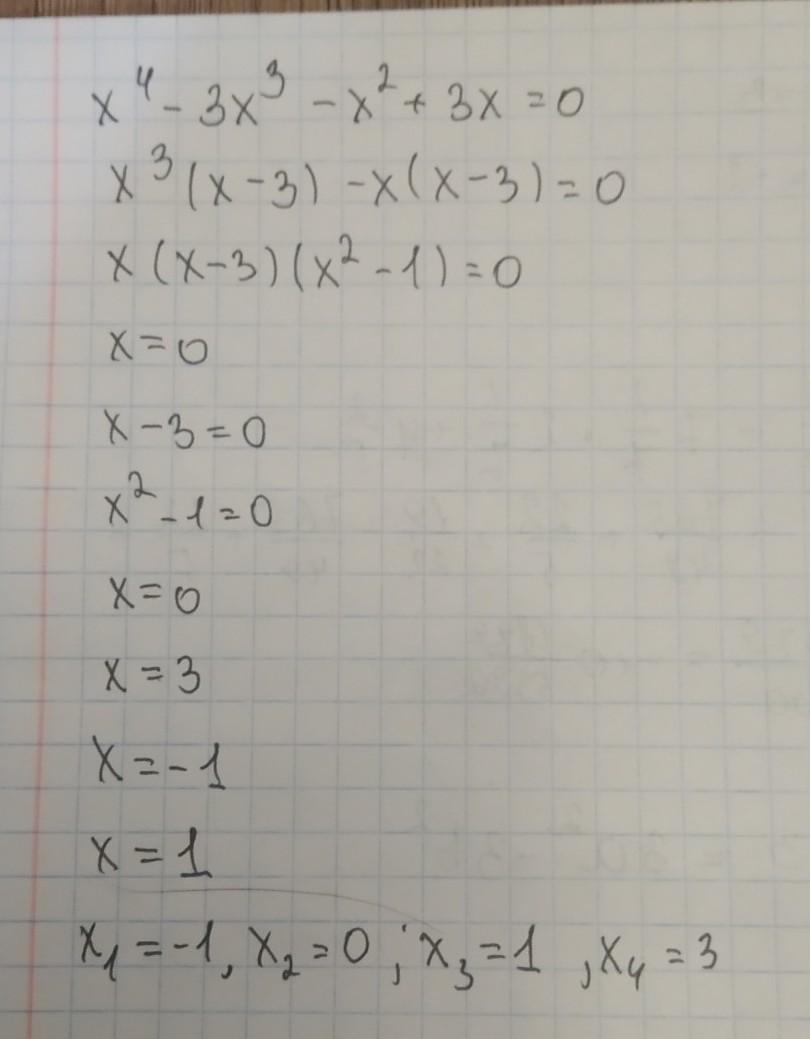 x⁴ - 3x³ - x² + 3x = 0
x³(x-3) - x(x-3) = 0
x(x-3)(x²-1) = 0
x = 0
x - 3 = 0
x² - 1 = 0
x = 0
x = 3
x = -1
x = 1
x₁ = -1, x₂ = 0, x₃ = 1, x₄ = 3